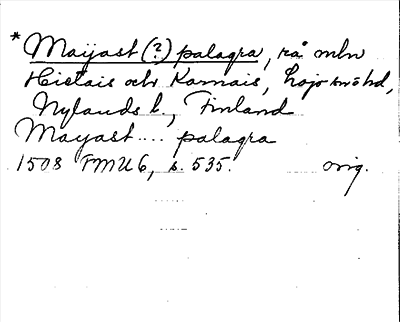 * Maijast (?) palagra, rå mln
Hietais och Karnais, Lojo snöhd,
Nylands l., Finland
Mayast.... palagra
1508 FMU 6, s. 535. orig.